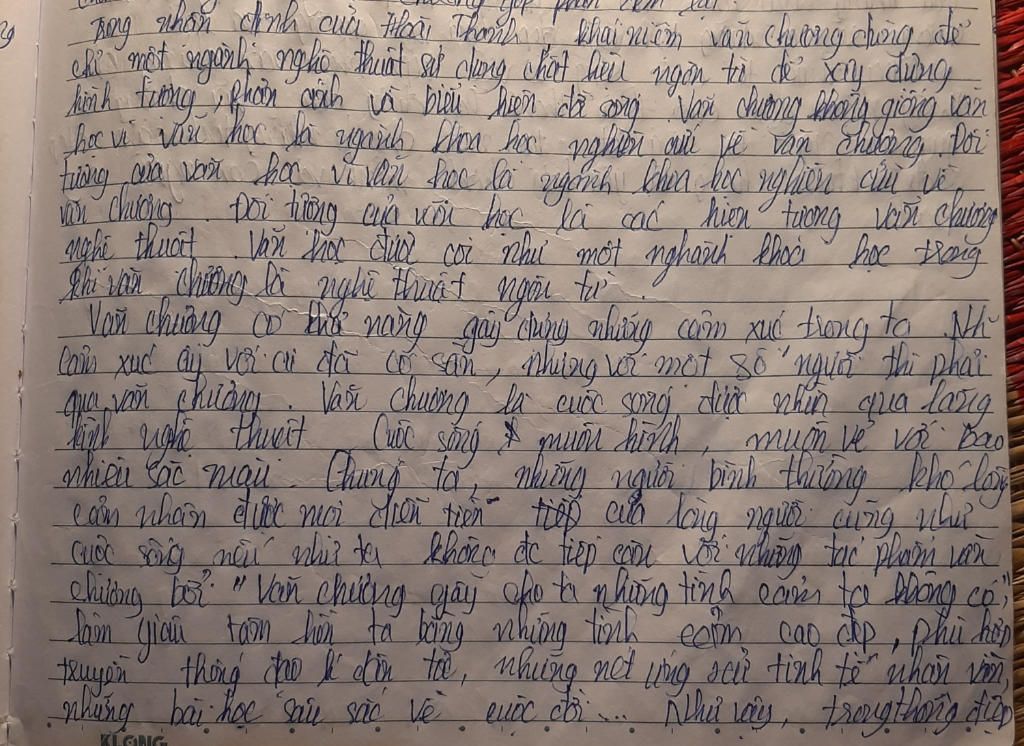 Trong nhân định của Hoài Thanh khái niệm văn chương dùng để
chỉ một ngành nghệ thuật sử dụng chất liệu ngôn từ để xây dựng
hình tượng, phản ánh và biểu hiện đời sống. Văn chương không giống văn
học vì văn học là ngành khoa học nghiên cứu về văn chương. Đối
tượng của văn học vì văn học là ngành khoa học nghiên cứu về
văn chương. Đối tượng của văn học là các hiện tượng văn chương
nghệ thuật. Văn học được coi như một nghành khoa học trong
khi văn chương là nghệ thuật ngôn từ.
Văn chương có khả năng gây dựng những cảm xúc trong ta. Nh
cảm xúc ấy với đã có sẵn, nhưng với một số người thì phải
qua văn chương. Văn chương là cuộc sống được nhìn qua lăng
kính nghệ thuật. Cuộc sống muôn hình, muôn vẻ với bao
nhiêu sắc màu. Chúng ta, những người bình thường khó lòng
cảm nhận được mọi diễn tiến của lòng người cũng như
cuộc sống nếu như ta không đc tiếp cận với những tác phẩm văn
chương bởi "Văn chương gây cho ta những tình cảm ta không có",
làm giàu tâm hồn ta bằng những tình cảm cao đẹp, phù hợp
truyền thống đạo lí dân tộc, những nét ứng xử tinh tế nhân văn,
những bài học sâu sắc về cuộc đời... Như vậy, trong thông điệp
KLONG